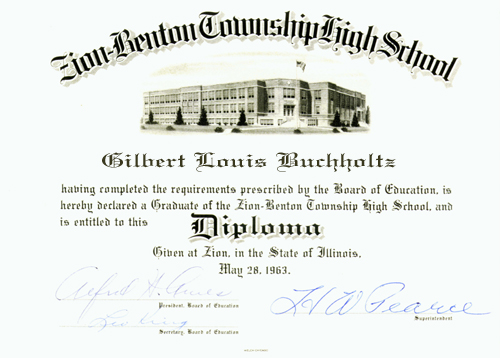 Zion-Benton Township High School
Gilbert Louis Buchholtz
having completed the requirements prescribed by the Board of Education, is
hereby declared a Graduate of the Zion-Benton Township High School, and
is entitled to this Diploma
Given at Zion, in the State of Illinois,
May 28, 1963.
Alfred H.
President, Board of Education
H W Pearce
Superintendent
Secretary, Board of Education